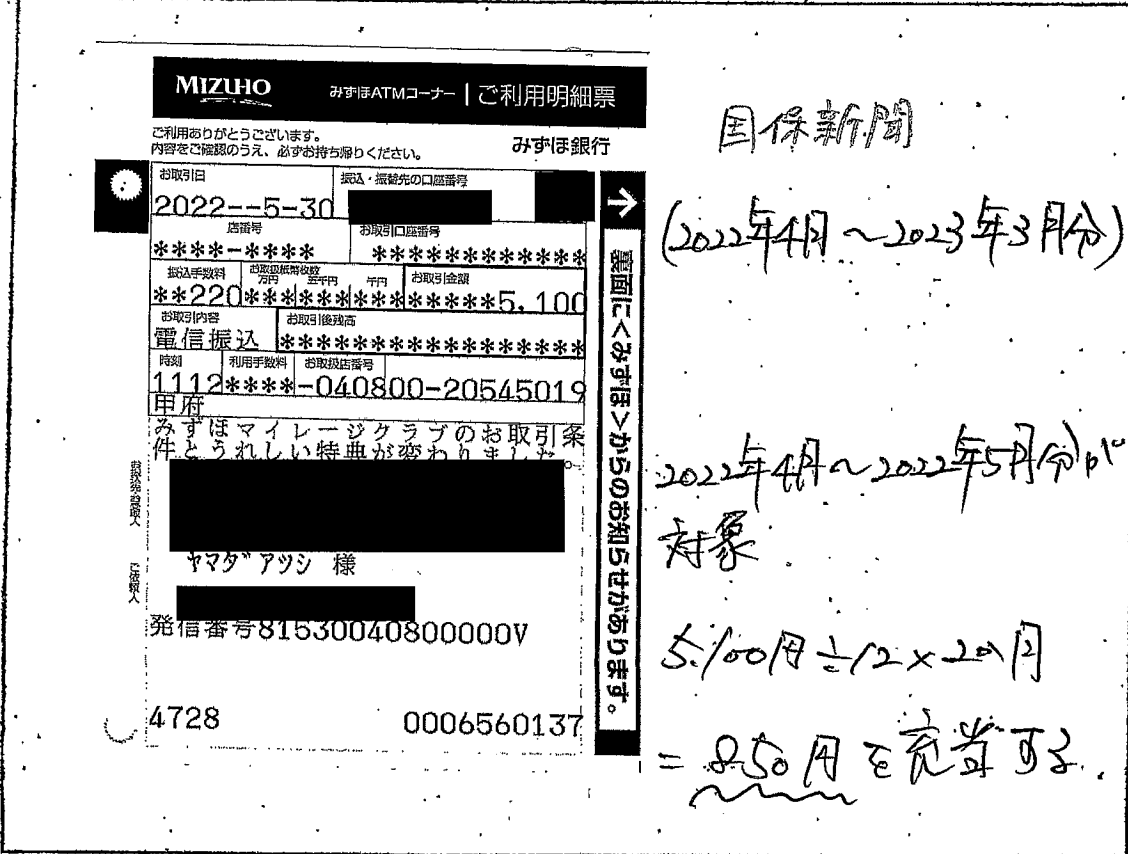 MIZUHO みずほATMコーナー | ご利用明細票
ご利用ありがとうございます。
内容をご確認のうえ、必ずお持ち帰りください。
みずほ銀行
お取引日 振込・振替先の口座番号
2022--5-30
店番号 お取引口座番号
****-**** ************
振込手数料 お取扱紙幣枚数 万円 五千円 千円 お取引金額
**220*** *** *** ******5,100
お取引内容 お取引後残高
電信振込 *****************
時刻 利用手数料 お取扱店番号
1112****-040800-20545019
甲府
みずほマイレージクラブのお取引条
件とうれしい特典が変わりました。
お振込先・お受取人
ヤマダ アツシ 様
ご依頼人
発信番号81530040800000V
4728 0006560137
→裏面に<みずほ>からのお知らせがあります。
国保新聞
(2022年4月~2023年3月分)
2022年4月~2022年5月分が
対象
5,100円÷12×2ヶ月
=850円を充当する.